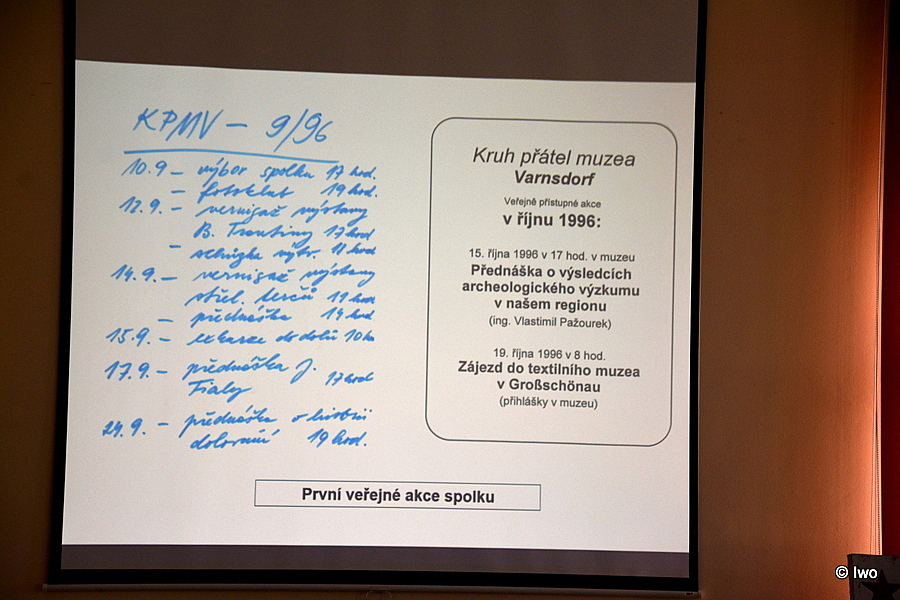 KPMV - 9/96
10.9 - výbor spolku 17 hod.
- fotoklub 19 hod.
12.9. - vernisáž výstavy
B. Trentiny 17 hod
- schůzka výtv. 18 hod
14.9. - vernisáž výstavy
střel. terčů 11 hod
- přednáška 14 hod
15.9. - exkurze do dolů 10 h
17.9. - přednáška J.
Fialy 17 hod
24.9. - přednáška o historii
dolování 19 hod.
Kruh přátel muzea
Varnsdorf
Veřejně přístupné akce
v říjnu 1996:
15. října 1996 v 17 hod. v muzeu
Přednáška o výsledcích
archeologického výzkumu
v našem regionu
(ing. Vlastimil Pažourek)
19. října 1996 v 8 hod.
Zájezd do textilního muzea
v Großschönau
(přihlášky v muzeu)
První veřejné akce spolku
© Iwo